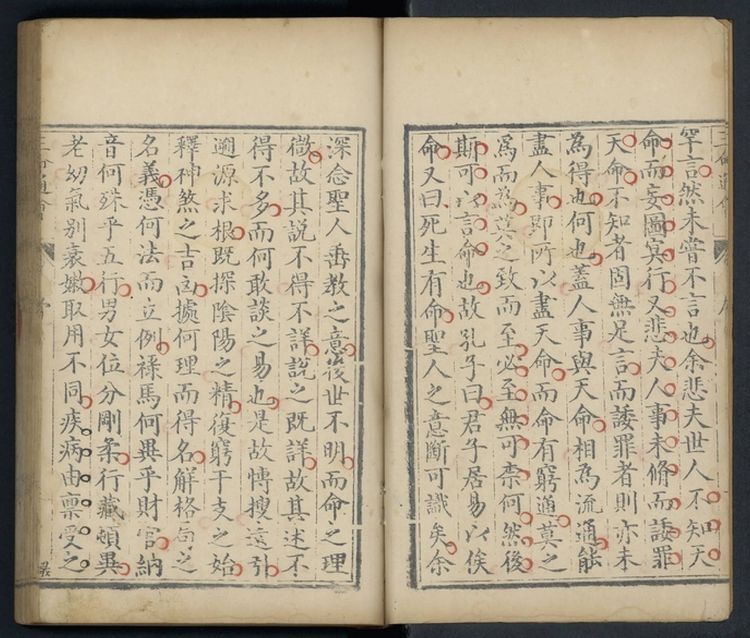 三命通會
罕言然未嘗不言也余悲夫世人不知天
命而妄圖冥行又悲夫人事未脩而諉罪
天命不知者固無足言而諉罪者則亦未
為得也何也蓋人事與天命相為流通能
盡人事即所以盡天命而命有窮通莫之
為而為莫之致而至必至無可柰何然後
斯可以言命也故孔子曰君子居易以俟
命又曰死生有命聖人之意斷可識矣余
深念聖人垂教之意後世不明而命之理
微故其說不得不詳說之既詳故其述不
得不多而何敢談之易也是故慱搜遠引
遡源求根既探陰陽之精復窮干支之始
釋神煞之吉凶據何理而得名解格局之
名義憑何法而立例祿馬何異乎財官納
音何殊乎五行男女位分剛柔行藏頓異
老幼氣別衰嫩取用不同疾病由禀受之
三命通會